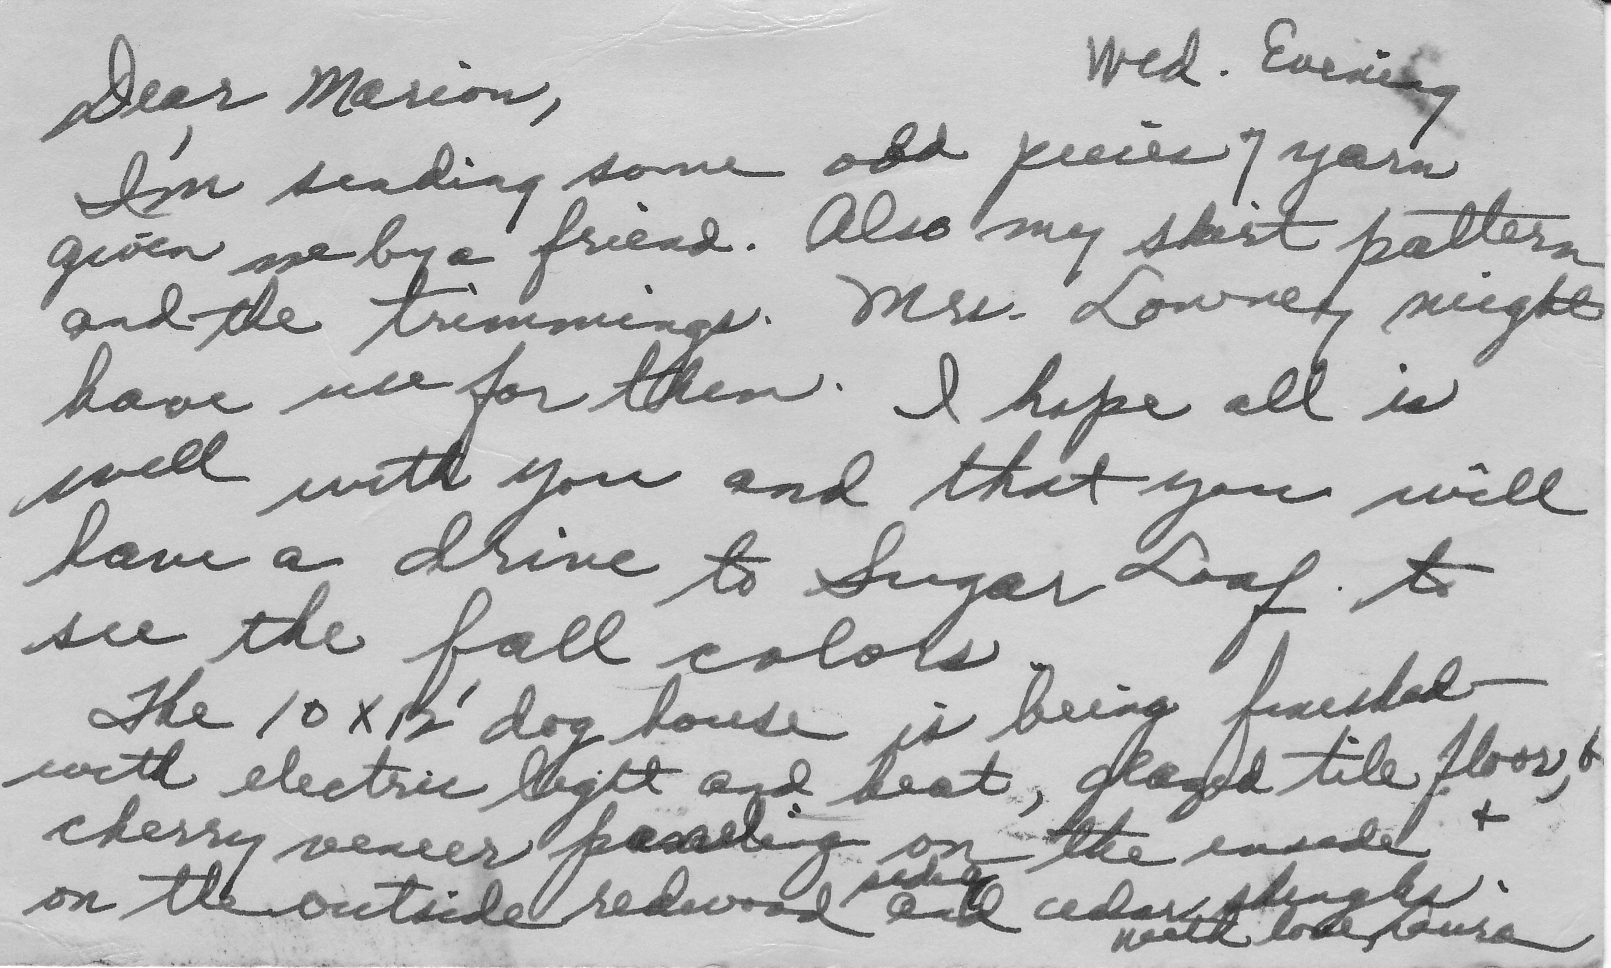 Wed. Evening
Dear Marion,
I'm sending some odd pieces of yarn
given me by a friend. Also my skirt pattern
and the trimmings. Mrs. Lowney might
have use for them. I hope all is
well with you and that you will
have a drive to Sugar Loaf. to
see the fall colors.
The 10 x 12' dog house is being finished
with electric light and heat, glazed tile floor,
cherry veneer paneling on the inside +
on the outside redwood siding and cedar shingles.
with love, Laura